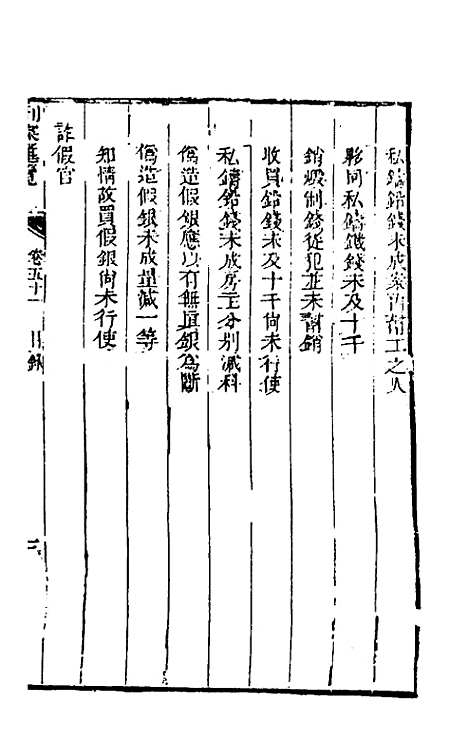 私鑄鉛錢未成案內帮工之人
夥同私鑄鐵錢未及十千
銷燬制錢從犯並未幫銷
收買鉛錢未及十千尚未行使
私鑄鉛錢未成房主分別減科
僞造假銀應以有無眞銀爲斷
僞造假銀未成量減一等
知情故買假銀尚未行使
詐假官
刑案匯覽 卷五十一 目錄